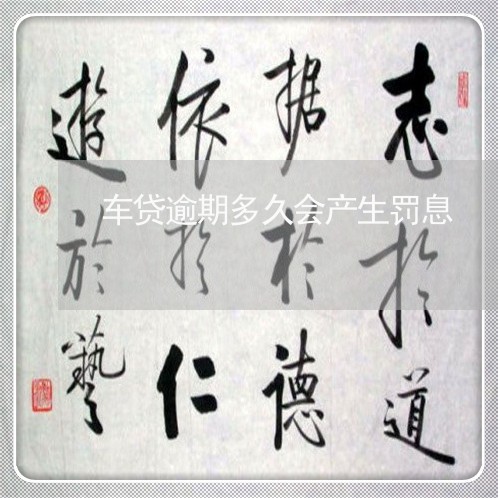 志於道
据於德
依於仁
遊於藝
车贷逾期多久会产生罚息